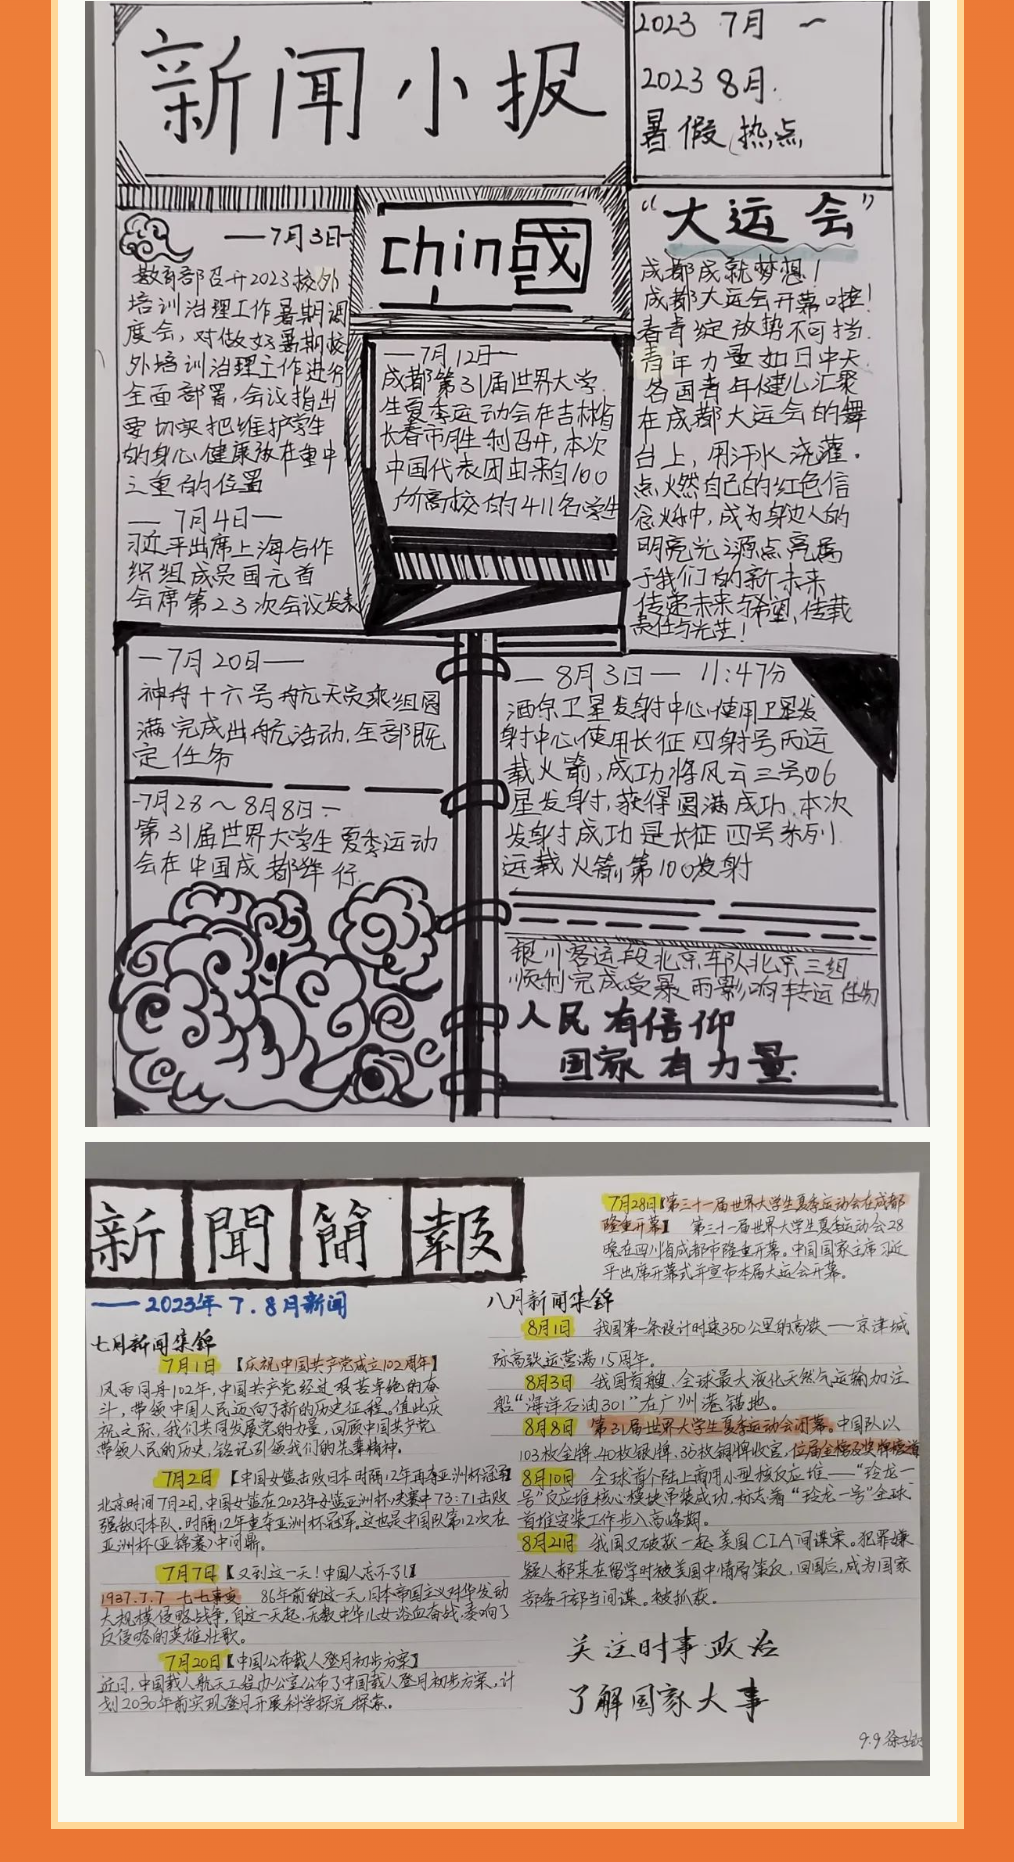 新闻小报
2023 7月 ~
2023 8月.
暑假热点
—7月3日—
教育部召开2023校外
培训治理工作暑期调
度会，对做好暑期校
外培训治理工作进行
全面部署，会议指出
要切实把维护学生
的身心健康放在重中
之重的位置
— 7月4日—
习近平出席上海合作
织组成员国元首
会席第23次会议发表
chin国
—7月12日—
成都第31届世界大学
生夏季运动会在吉林省
长春市胜利召开，本次
中国代表团由来自100
个高校的411名学生
“大运会”
成都成就梦想！
成都大运会开幕口控！
春青绽放势不可挡.
青年力量如日中天.
各国青年健儿汇聚
在成都大运会的舞
台上，用汗水浇灌.
点燃自己的红色信
念火种，成为身边人的
明亮光之源点亮属
于我们的新未来
传递未来与希望，传载
责任与光芒！
—7月20日—
神舟十六号航天员乘组圆
满完成出舱活动，全部既
定任务
-7月28~8月8日-
第31届世界大学生夏季运动
会在中国成都举行.
— 8月3日— 11:47分
酒泉卫星发射中心使用卫星发
射中心使用长征四射号丙运
载火箭，成功将风云三号06
星发射，获得圆满成功，本次
发射成功是长征四号系列
运载火箭第100发射
银川客运段北京车队北京三组
顺利完成受暴雨影响转运任务
人民有信仰
国家有力量.
新聞簡報
——2023年7.8月新闻
七月新闻集锦
7月1日【庆祝中国共产党成立102周年】
风雨同舟102年，中国共产党经过艰苦卓绝的奋
斗，带领中国人民迈向了新的历史征程。值此庆
祝之际，我们共同发展党的力量，回顾中国共产党
带领人民的历史，铭记引领我们的先辈精神。
7月2日【中国女篮击败日本时隔12年再夺亚洲杯冠军】
北京时间7月2日，中国女篮在2023年女篮亚洲杯决赛中73:71击败
强敌日本队，时隔12年重夺亚洲杯冠军。这也是中国队第12次在
亚洲杯(亚锦赛)中问鼎。
7月7日【又到这一天！中国人忘不了！】
1937.7.7 七七事变 86年前的这一天，日本帝国主义对华发动
大规模侵略战争，自这一天起，无数中华儿女浴血奋战，奏响了
反侵略的英雄壮歌。
7月20日【中国公布载人登月初步方案】
近日，中国载人航天工程办公室公布了中国载人登月初步方案，计
划2030年前实现登月开展科学探究探索。
7月28日【第三十一届世界大学生夏季运动会在成都
隆重开幕】 第三十一届世界大学生夏季运动会28
晚在四川省成都市隆重开幕。中国国家主席习近
平出席开幕式并宣布本届大运会开幕。
八月新闻集锦
8月1日 我国第一条设计时速350公里的高铁——京津城
际高铁运营满15周年。
8月3日 我国首艘、全球最大液化天然气运输加注
船“海洋石油301”在广州港锚地。
8月8日 第31届世界大学生夏季运动会闭幕。中国队以
103枚金牌、40枚银牌、35枚铜牌收官，位居金榜及奖牌榜首
8月10日 全球首个陆上商用小型核反应堆——“玲龙一
号”反应堆核心模块吊装成功，标志着“玲龙一号”全球
首堆安装工作步入高峰期。
8月21日 我国又破获一起美国CIA间谍案。犯罪嫌
疑人郝某在留学时被美国中情局策反，回国后，成为国家
部委干部当间谍。被抓获。
关注时事政治
了解国家大事
9.9